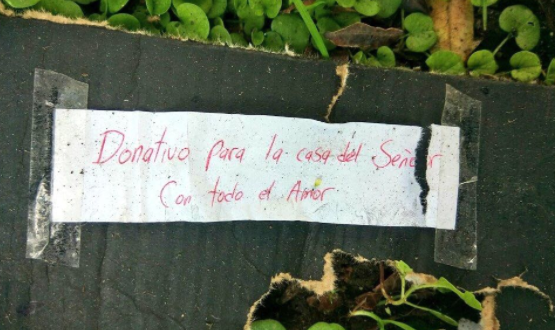 Donativo para la casa del Señor
Con todo el Amor